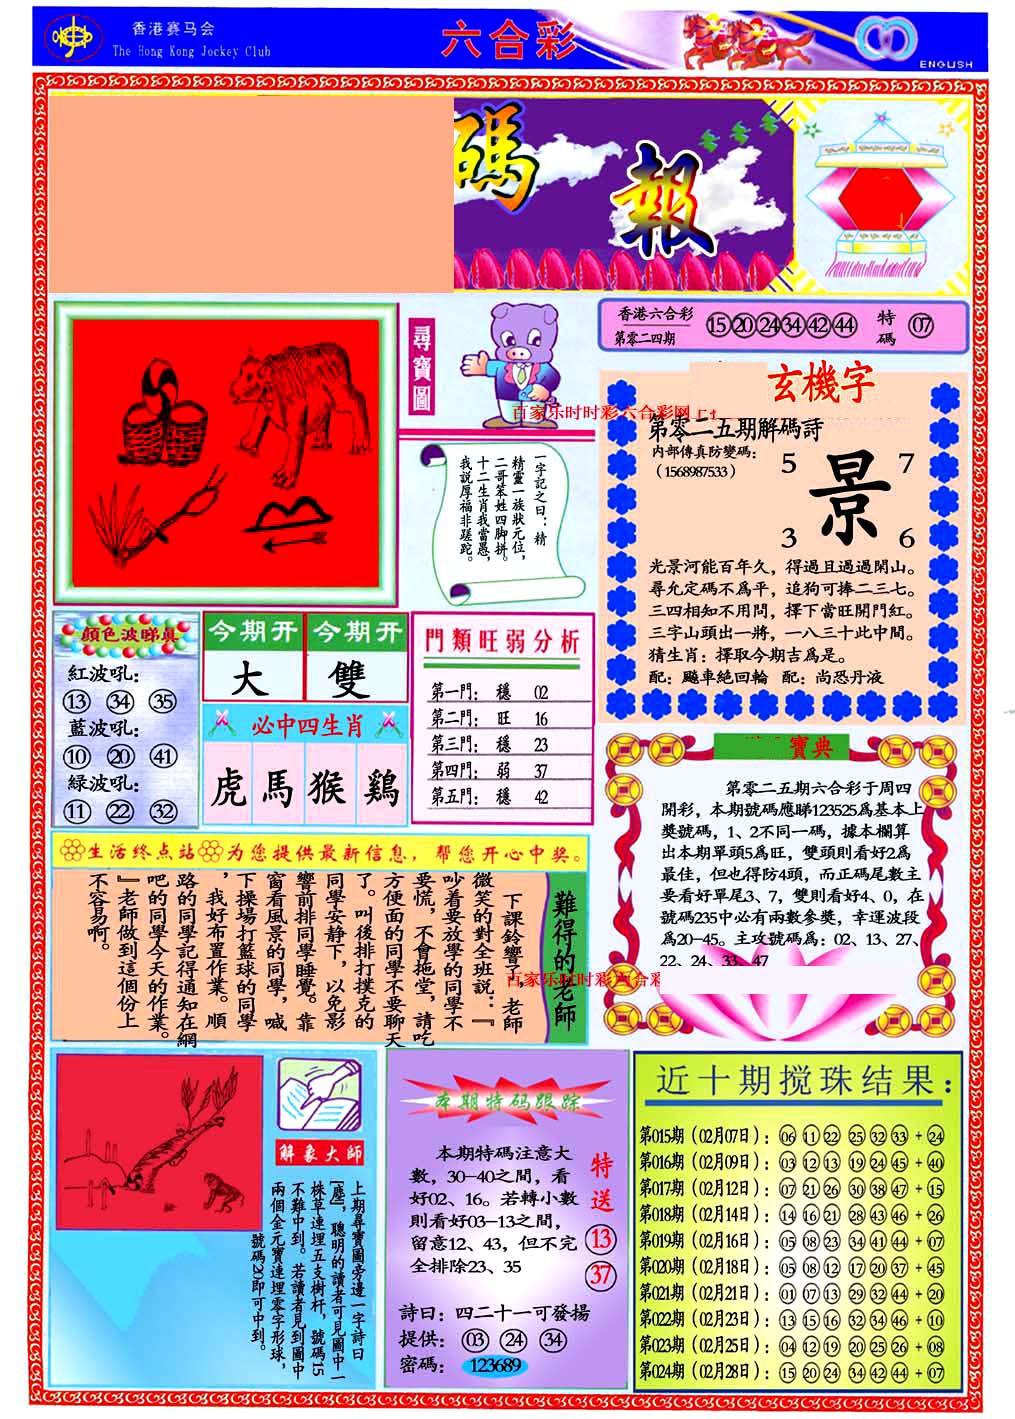 香港赛马会
The Hong Kong Jockey Club
六合彩
ENGLISH
碼報
尋寶圖
香港六合彩
第零二四期
15 20 24 34 42 44 特碼 07
百家乐时时彩六合彩网
玄機字
第零二五期解碼詩
内部傳真防變碼：
（1568987533）
5 7
景
3 6
光景河能百年久，得過且過過閑山。
尋允定碼不爲平，追狗可捧二三七。
三四相知不用問，擇下當旺開門紅。
三字山頭出一將，一八三十此中間。
猜生肖：擇取今期吉爲是。
配：飈車絕回輪 配：尚恐丹液
一字記之曰：精
精靈一族狀元位，
二哥笨姓四脚拼。
十二生肖我當愚，
我説厚福非蹉跎。
顏色波睇真
紅波吼：
13 34 35
藍波吼：
10 20 41
緑波吼：
11 22 32
今期开 今期开
大 雙
必中四生肖
虎 馬 猴 鷄
門類旺弱分析
第一門： 穩 02
第二門： 旺 16
第三門： 穩 23
第四門： 弱 37
第五門： 穩 42
寶典
第零二五期六合彩于周四
開彩，本期號碼應睇123525爲基本上
奬號碼，1、2不同一碼，據本欄算
出本期單頭5爲旺，雙頭則看好2爲
最佳，但也得防4頭，而正碼尾數主
要看好單尾3、7，雙則看好4、0，在
號碼235中必有兩數參奬，幸運波段
爲20-45。主攻號碼爲：02、13、27、
22、24、33、47
生活终点站 为您提供最新信息，帮您开心中奖。
難得的老師
下課鈴響了，老師
微笑的對全班説：『
吵着要放學的同學不
要慌，不會拖堂，請吃
方便面的同學不要聊天
了。叫後排打撲克的
同學安静下，以免影
響前排同學睡覺。靠
窗看風景的同學，喊
下操場打籃球的同學
，我好布置作業。順
路的同學記得通知在網
吧的同學今天的作業。
』老師做到這個份上
不容易啊。
百家乐时时彩六合彩
解象大師
上期尋寶圖旁邊一字詩曰
[塵]，聰明的讀者可見圖中一
株草連埋五支樹杆，號碼15
不難中到。若讀者見到圖中
兩個金元寶連埋零字形球，
號碼20即可中到。
本期特码跟踪
本期特碼注意大
數，30-40之間，看
好02、16。若轉小數
則看好03-13之間，
留意12、43，但不完
全排除23、35
特送
13
37
詩曰：四二十一可發揚
提供： 03 24 34
密碼： 123689
近十期搅珠结果：
第015期（02月07日）：06 11 22 25 32 33 + 24
第016期（02月09日）：03 12 13 19 24 45 + 40
第017期（02月12日）：07 21 26 30 38 47 + 15
第018期（02月14日）：14 16 21 28 43 46 + 26
第019期（02月16日）：05 08 23 34 41 44 + 07
第020期（02月18日）：05 08 12 17 20 37 + 45
第021期（02月21日）：01 07 13 29 32 44 + 20
第022期（02月23日）：13 15 16 32 34 46 + 10
第023期（02月25日）：04 12 19 20 25 26 + 08
第024期（02月28日）：15 20 24 34 42 44 + 07